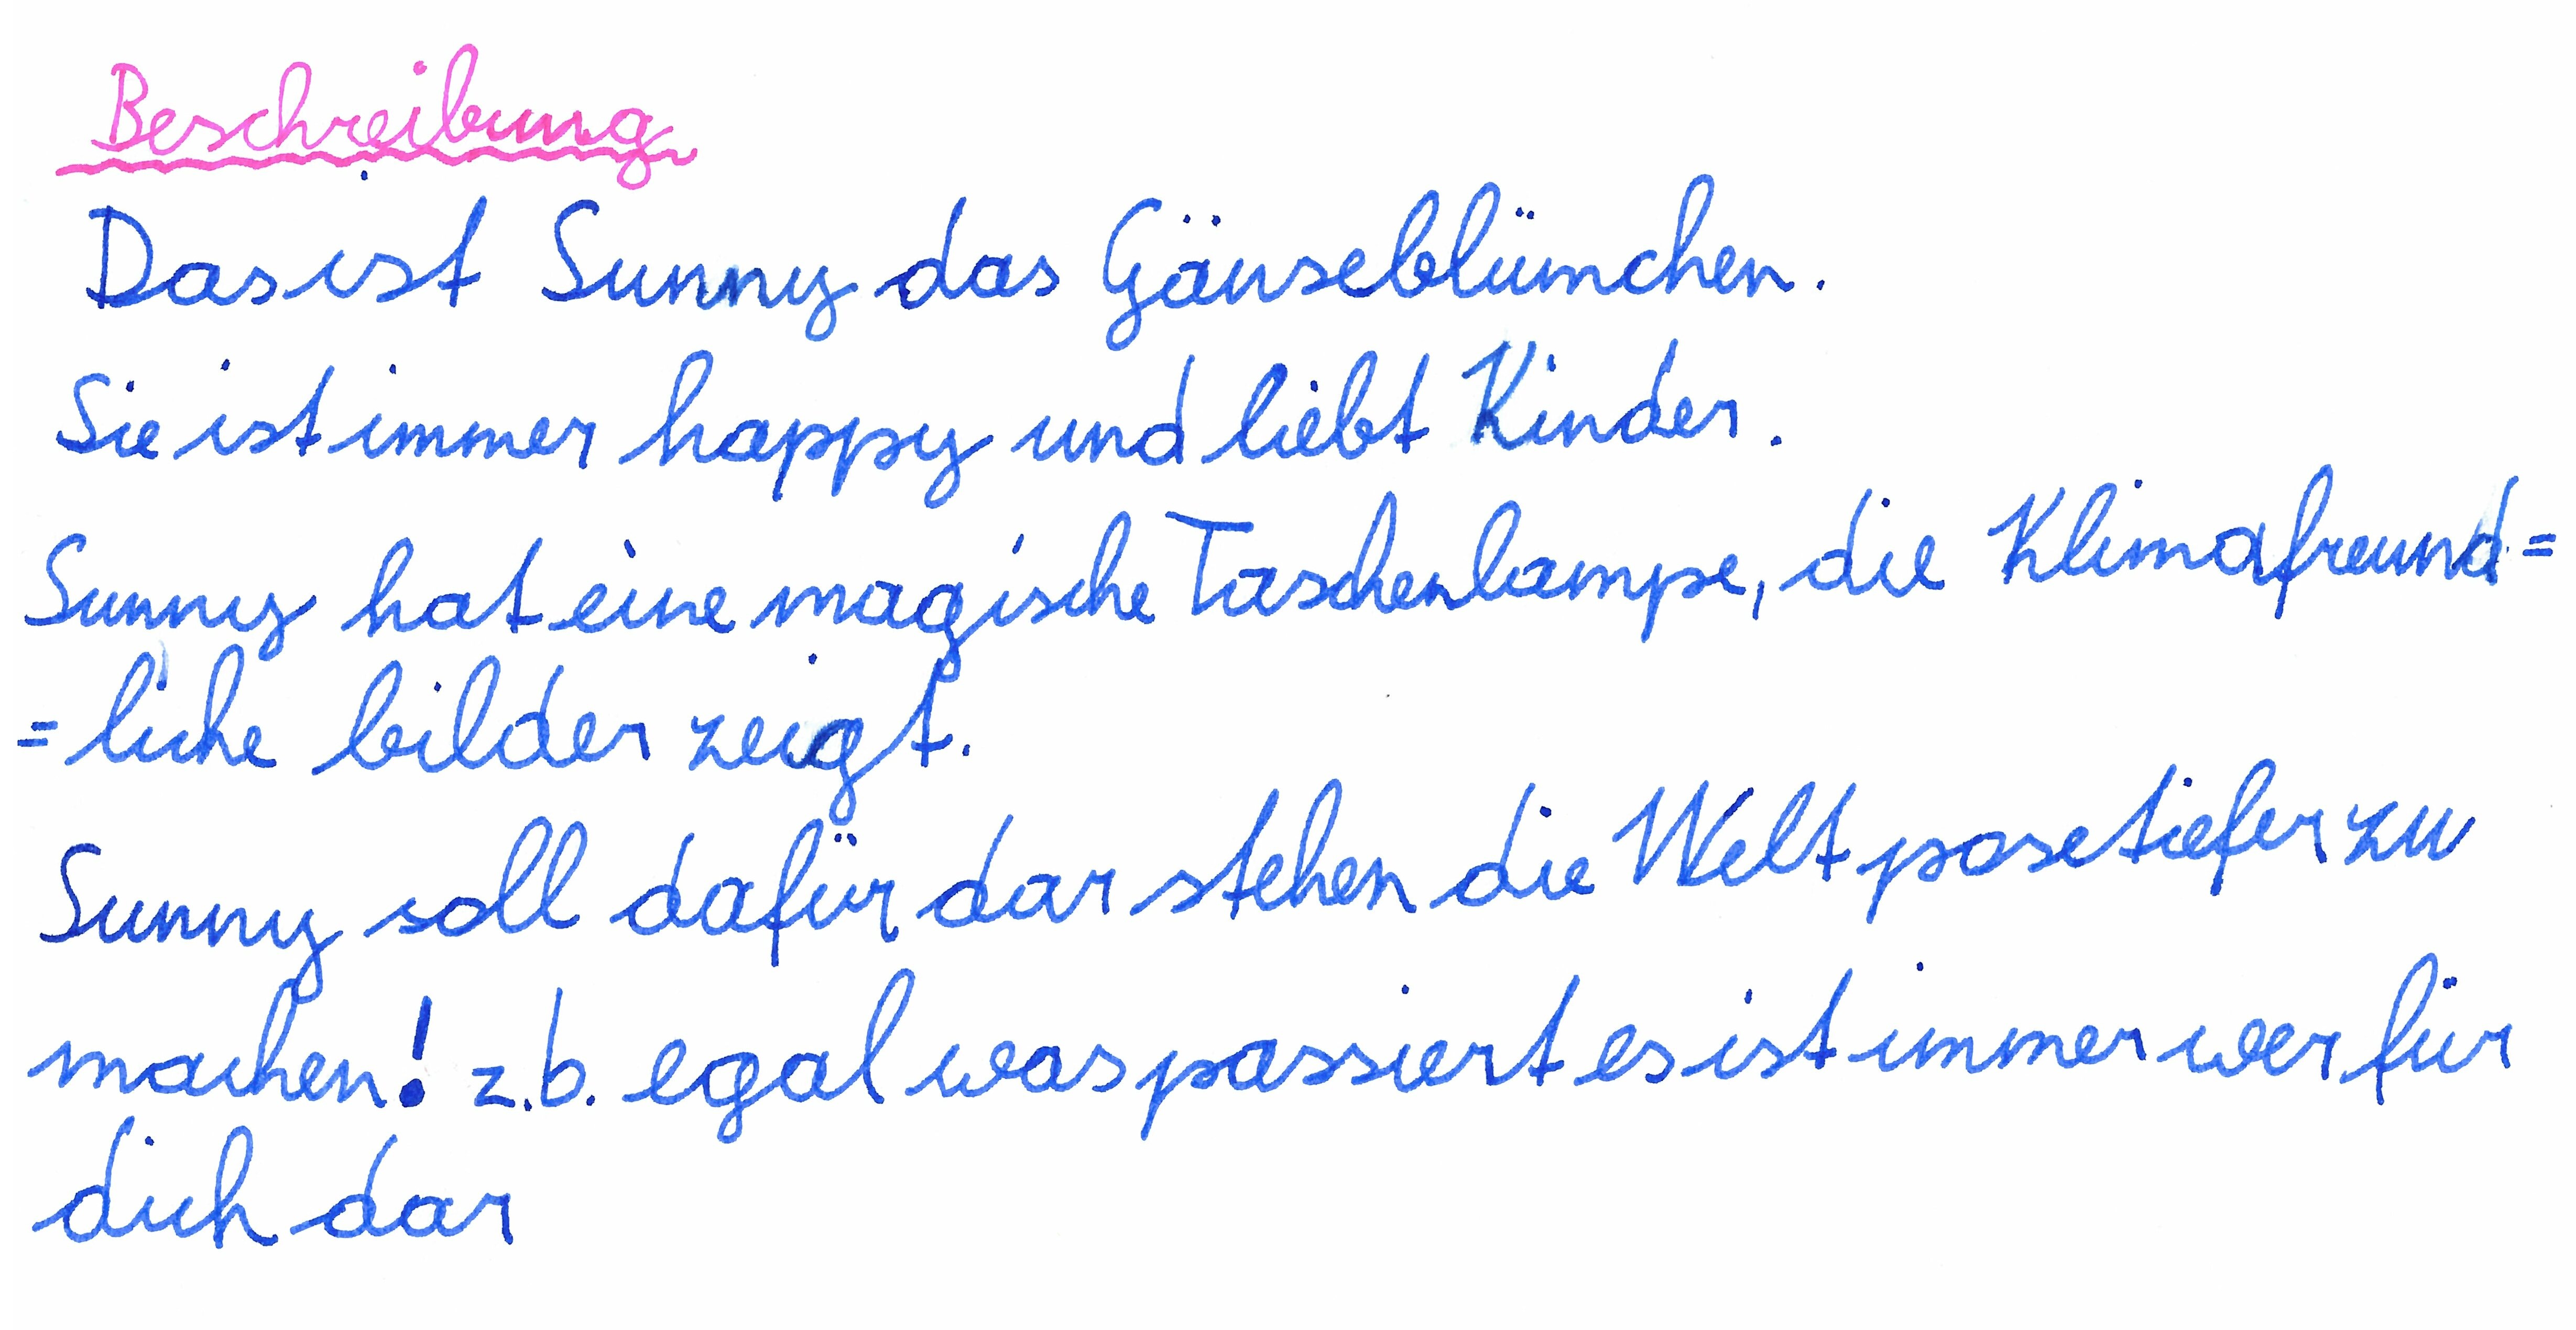 Beschreibung
Das ist Sunny das Gänseblümchen.
Sie ist immer happy und liebt Kinder.
Sunny hat eine magische Taschenlampe, die Klimafreund=
=liche bilder zeigt.
Sunny soll dafür dar stehen die Welt posetiefer zu
machen! z.b. egal was passiert es ist immer wer für
dich dar